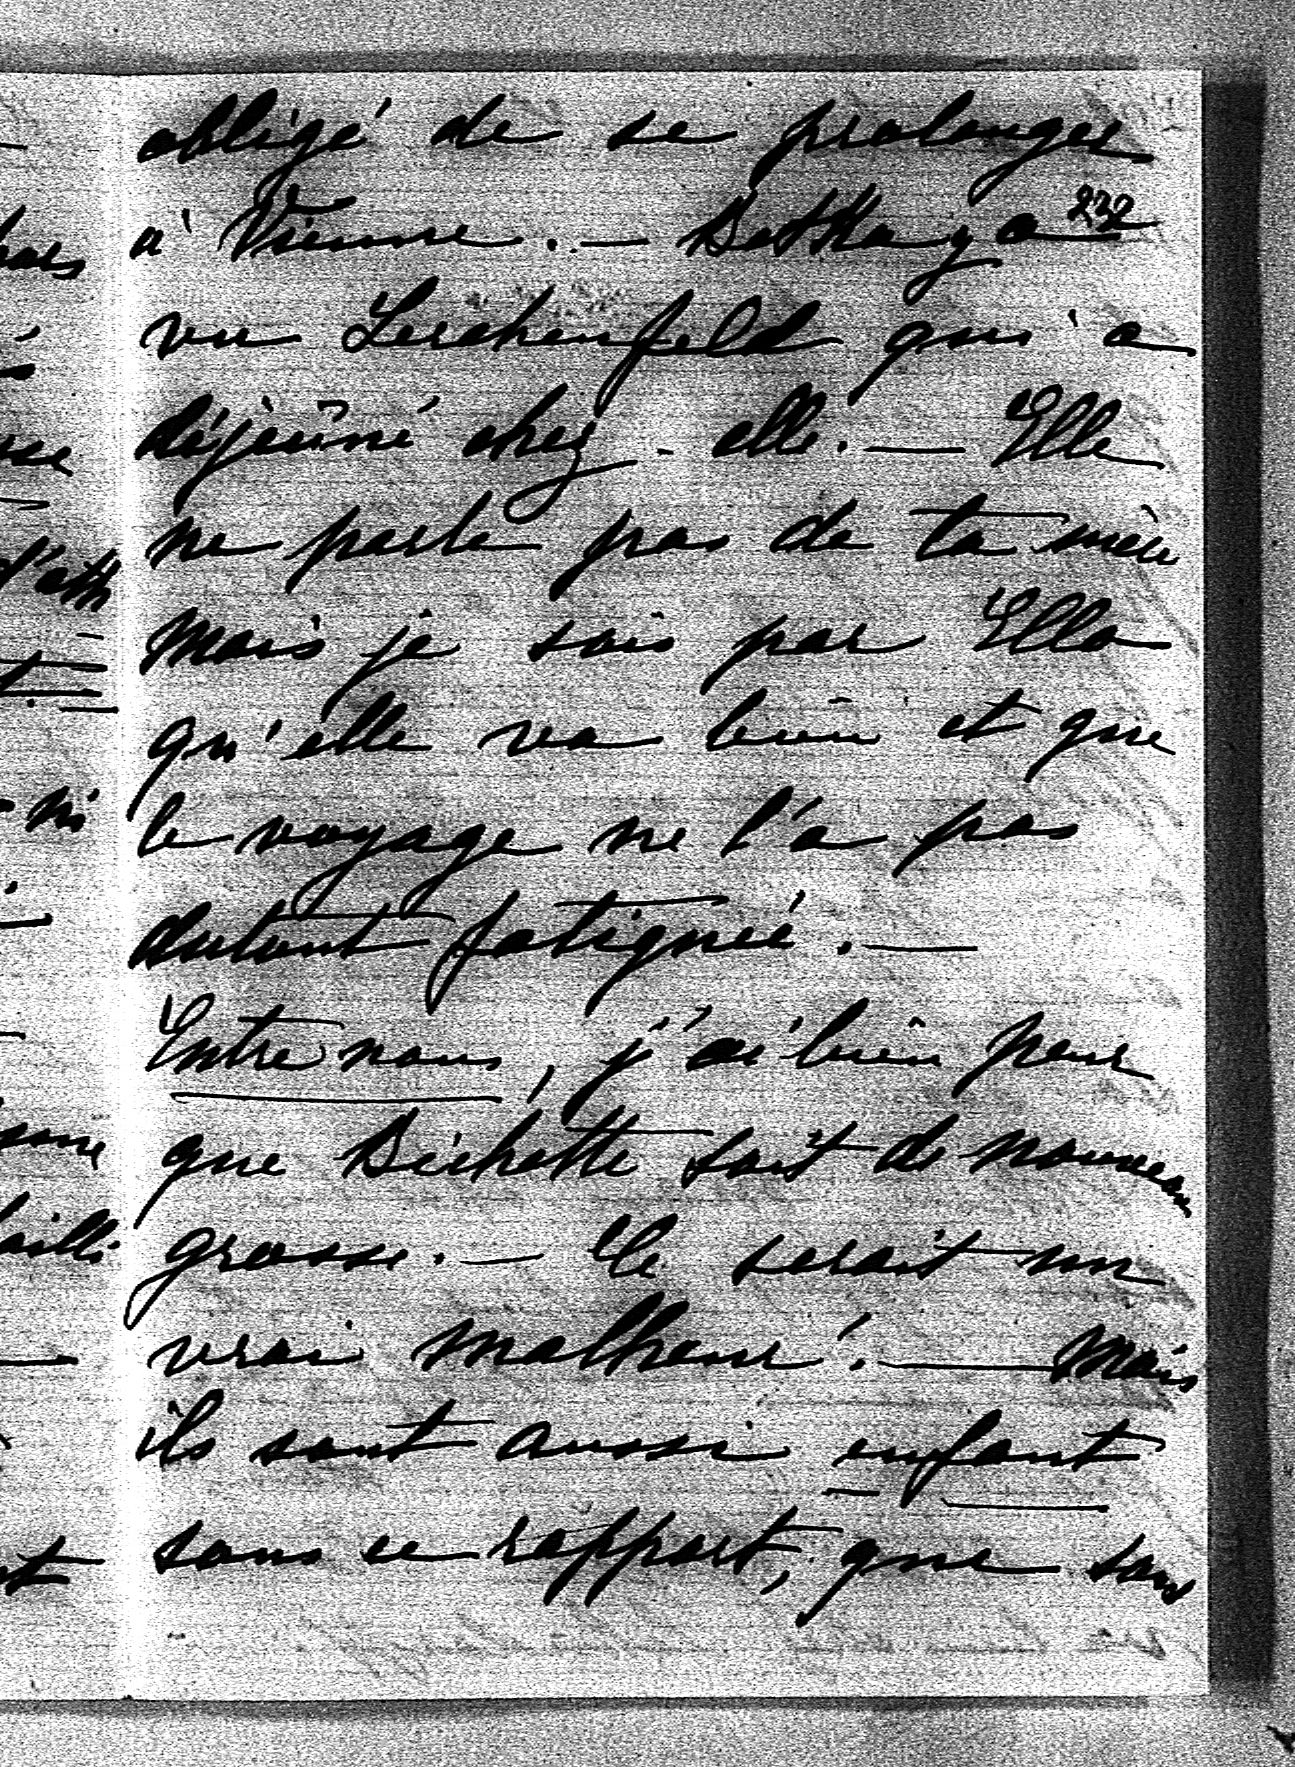 obligé de se prolonger
232
à Vienne. — Betka y a
vu Lerchenfeld qui a
déjeûné chez-elle. — Elle
ne parle pas de ta mère
mais je sais par Ella
qu'elle va bien et que
le voyage ne l'a pas
autant fatiguée. —
Entre nous, j'ai bien peur
que Bichette soit de nouveau
grosse. — Ce serait un
vrai malheur! — Mais
ils sont aussi enfant
sous ce rapport, que sous